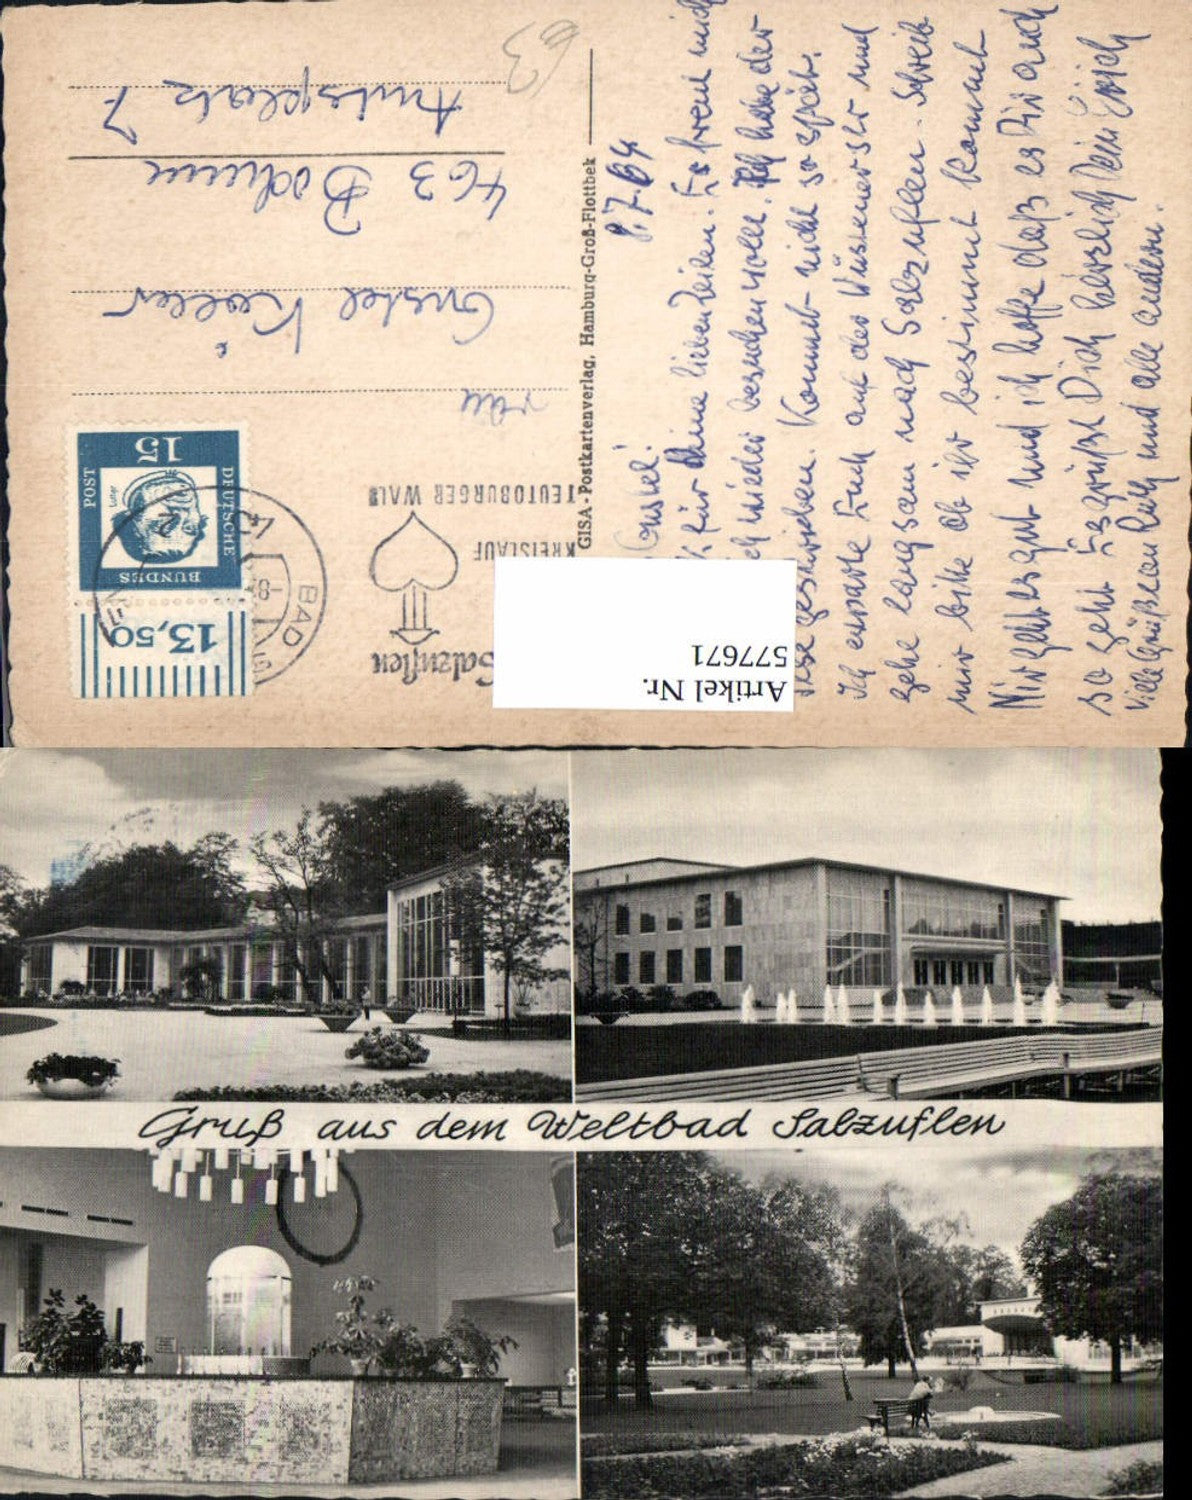 8.7.64
Gustel!
für Deine lieben Zeilen. Es freut mich
wieder besuchen wollt. Ich habe der
geschrieben. Kommt nicht so spät.
Ich erwarte Euch auf der Wüstenerstr und
gehe langsam nach Salzuflen. Schreib
mir bitte ob ihr bestimmt kommt
Mir geht es gut und ich hoffe daß es Dir auch
so geht. Es grüßt Dich herzlich Dein Erich
Viele Grüße an Ruth und alle andern.
GISA-Postkartenverlag, Hamburg-Groß-Flottbek
Artikel Nr.
577671
Salzuflen
KREISLAUF
TEUTOBURGER WALD
BAD
13,50
DEUTSCHE
BUNDES
POST
Luther
15
Gustel
463 Bochum
Amtsplatz 7
63
Gruß aus dem Weltbad Salzuflen